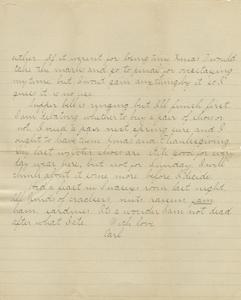 either. If it weren't for being time Xmas I would
take the mark and so to email for overtaxing
my time but I want earn anything by it so I
guess it is no use.
Supper bell is ringing but I'll finish first.
I am debating whether to buy a pair of shoes or
not. I must a pair next spring sure and I
ought to have them Xmas and Thanksgiving.
My last winter shoes are still good for every
day wear here, but not on Sunday. I will
think about it some more before I decide.
Had a feast in Swazies room last night.
All kinds of crackers, nuts raisins, jam
ham, sardines. It's a wonder I am not dead
after what I ate. With love
Carl